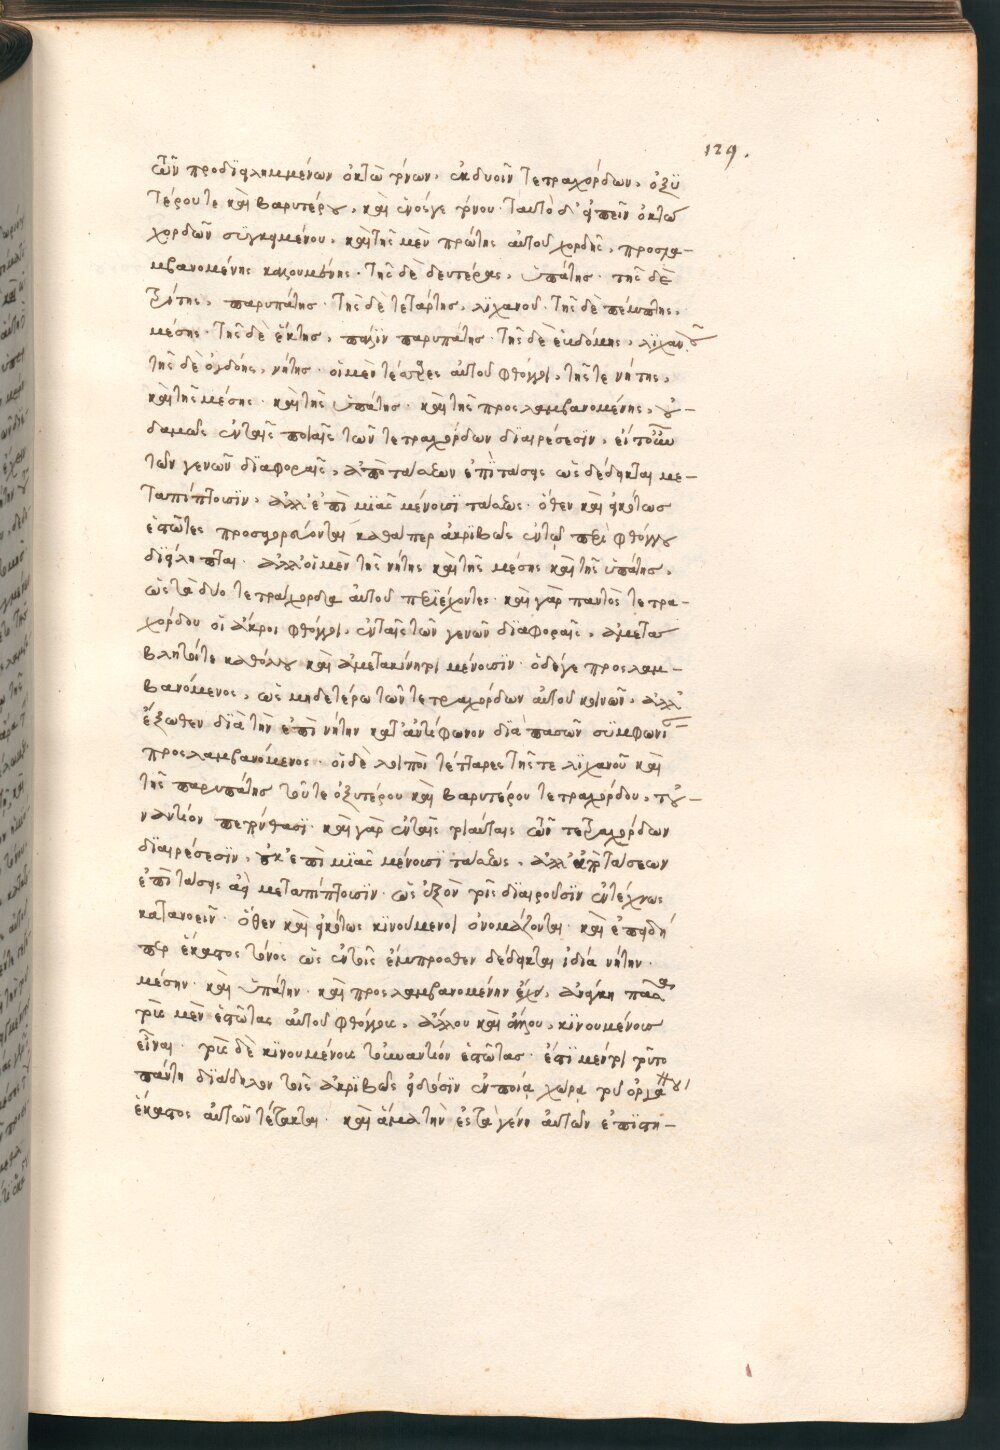 129.
τῶν προδιηλημμένων ὀκτὼ τόνων, ἐκ δυοῖν τετραχόρδων, ὀξυ
τέρου τε καὶ βαρυτέρου, καὶ ἑνός γε τόνου· ταυτὸ δ' εἰπεῖν ὀκτὼ
χορδῶν συγκειμένου, καὶ τῆς μὲν πρώτης αὐτοῦ χορδῆς, προσλα-
μβανομένης καλουμένης· τῆς δὲ δευτέρας, ὑπάτης· τῆς δὲ
τρίτης, παρυπάτης· τῆς δὲ τετάρτης, λιχανοῦ· τῆς δὲ πέμπτης,
μέσης· τῆς δὲ ἕκτης, πάλιν παρυπάτης· τῆς δὲ ἑβδόμης, λιχανοῦ
τῆς δὲ ὀγδόης, νήτης· οἱ μὲν τέσσαρες αὐτοῦ φθόγγοι, τῆς τε νήτης,
καὶ τῆς μέσης· καὶ τῆς ὑπάτης· καὶ τῆς προσλαμβανομένης, οὐ-
δαμῶς ἐν ταῖς ποιαῖς τῶν τετραχόρδων διαιρέσεσιν, εἴτουν
τῶν γενῶν διαφοραῖς, ἀπὸ τάσεων ἐπὶ τάσεις ὡς δέδεικται με-
ταπίπτουσιν, ἀλλ' ἐπὶ μιᾶς μένουσι τάσεως· ὅθεν καὶ εἰκότως
ἑστῶτες προσηγορεύονται καθάπερ ἀκριβῶς ἐν τῷ περὶ φθόγγου
διείληπται· ἀλλ' οἱ μὲν τῆς νήτης καὶ τῆς μέσης καὶ τῆς ὑπάτης,
ὡς τὰ δύο τετράχορδα αὐτοῦ περιέχοντες· καὶ γὰρ παντὸς τετρα-
χόρδου οἱ ἄκροι φθόγγοι, ἐν ταῖς τῶν γενῶν διαφοραῖς, ἀμετα
βλητοί τε καθόλου καὶ ἀμετακίνητοι μένουσιν· ὁ δέ γε προσλαμ-
βανόμενος, ὡς μηδετέρω τῶν τετραχόρδων αὐτοῦ κοινῶν, ἀλλ'
ἔξωθεν διὰ τὴν ἐπὶ νήτην κατ' ἀντίφωνον διὰ πασῶν συμφωνί
προσλαμβανόμενος· οἱ δὲ λοιποὶ τέτταρες τῆς τε λιχανοῦ καὶ
τῆς παρυπάτης τοῦ τε ὀξυτέρου καὶ βαρυτέρου τετραχόρδου, του-
ναντίον πεπόνθασι· καὶ γὰρ ἐν ταῖς τοιαύταις τῶν τετραχόρδων
διαιρέσεσιν, οὐκ ἐπὶ μιᾶς μένουσι τάσεως, ἀλλ' ἀπὸ τάσεων
ἐπὶ τάσεις ἀεὶ μεταπίπτουσιν· ὡς ἐξὸν τοῖς διαιροῦσιν ἐντέχνως
κατανοεῖν· ὅθεν καὶ εἰκότως κινούμενοι ὀνομάζονται· καὶ ἐπειδή
περ ἕκαστος τόνος ὡς ἐν τοῖς ἔμπροσθεν δέδεικται ἰδία νήτην·
μέσην· καὶ ὑπάτην· καὶ προσλαμβανομένην ἔχει, ἀνάγκη πᾶσα
τοὺς μὲν ἑστῶτας αὐτοῦ φθόγγους, ἄλλου καὶ ἄλλου, κινουμένους
εἶναι· τοὺς δὲ κινουμένους τοὐναντίον ἑστῶτας· ἔστι μέντοι τοῦτο
πάντη διάδηλον τοῖς ἀκριβῶς εἰδόσιν ἐν ποία χώρα τοῦ ὀργάνου
ἕκαστος αὐτῶν τέτακται· καὶ ἅμα τὴν ἐς τὰ γένη αὐτῶν ἐπιστή-